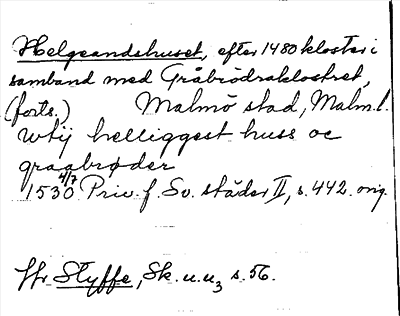 Helgeandshuset, efter 1480 kloster i
samband med Gråbrödraklostret,
(forts.) Malmö stad, Malm.l.
wtij helliggest huss oc
graabrøder
1530 4/7 Priv. f. Sv. städer II, s. 442. orig.
Hr Styffe, Sk. u. u3 s. 56.